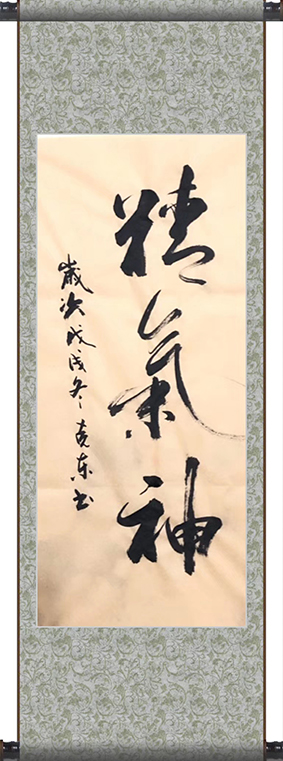 精氣神
歲次戊戌冬克东书